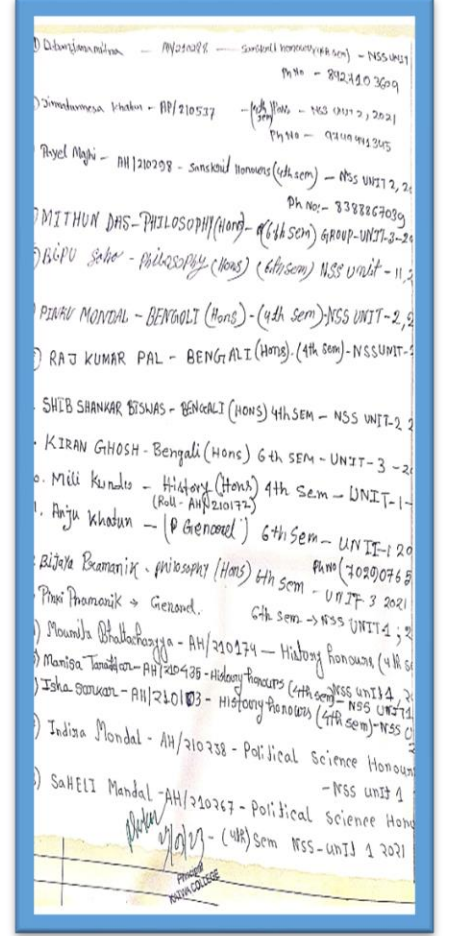 AH/210288 - Sanskrit honours (4th sem) - NSS UNIT
Ph No - 8927103609
Khatun - AP/210537 - (4th sem) - NSS UNIT 2, 2021
Ph No -
Payel Majhi - AH/210298 - Sanskrit Honours (4th sem) - NSS UNIT 2, 2
Ph No:- 8388867039
MITHUN DAS - PHILOSOPHY (Hons) - (6th Sem) GROUP-UNIT-3-2
BIPU Saha - Philosophy (Hons) (6th sem) NSS unit - II, 2
PINKU MONDAL - BENGOLI (Hons) - (4th Sem) - NSS UNIT-2, 2
RAJ KUMAR PAL - BENGALI (Hons). (4th Sem) - NSS UNIT-
SHIB SHANKAR BISWAS - BENGALI (HONS) 4th SEM - NSS UNIT-2 2
KIRAN GHOSH - Bengali (Hons) 6th SEM - UNIT-3 - 2
0. Mili Kundu - History (Hons) 4th Sem - UNIT-1-
(Roll - AH/210172)
1. Anju Khatun - (P General) 6th Sem - UNIT-1 20
Ph No (7029)0765
Bijaya Pramanik - philosophy (Hons) 6th sem - UNIT 3 2021
Pinki Pramanik → General. 6th Sem → NSS UNIT 1 ; 2
Moumita Bhattacharyya - AH/210174 - History honours (4th se
Manisa - AH/210435 - History honours (4th sem) NSS unit 1, 2
Isha Sarkar - AH/210103 - History honours (4th sem) - NSS UNIT 1
Indira Mondal - AH/210238 - Political Science Honours
- NSS unit 1
SAHELI Mandal - AH/210267 - Political Science Hono
- (4th) Sem NSS-unit 1 2021
PRINCIPAL
KATWA COLLEGE